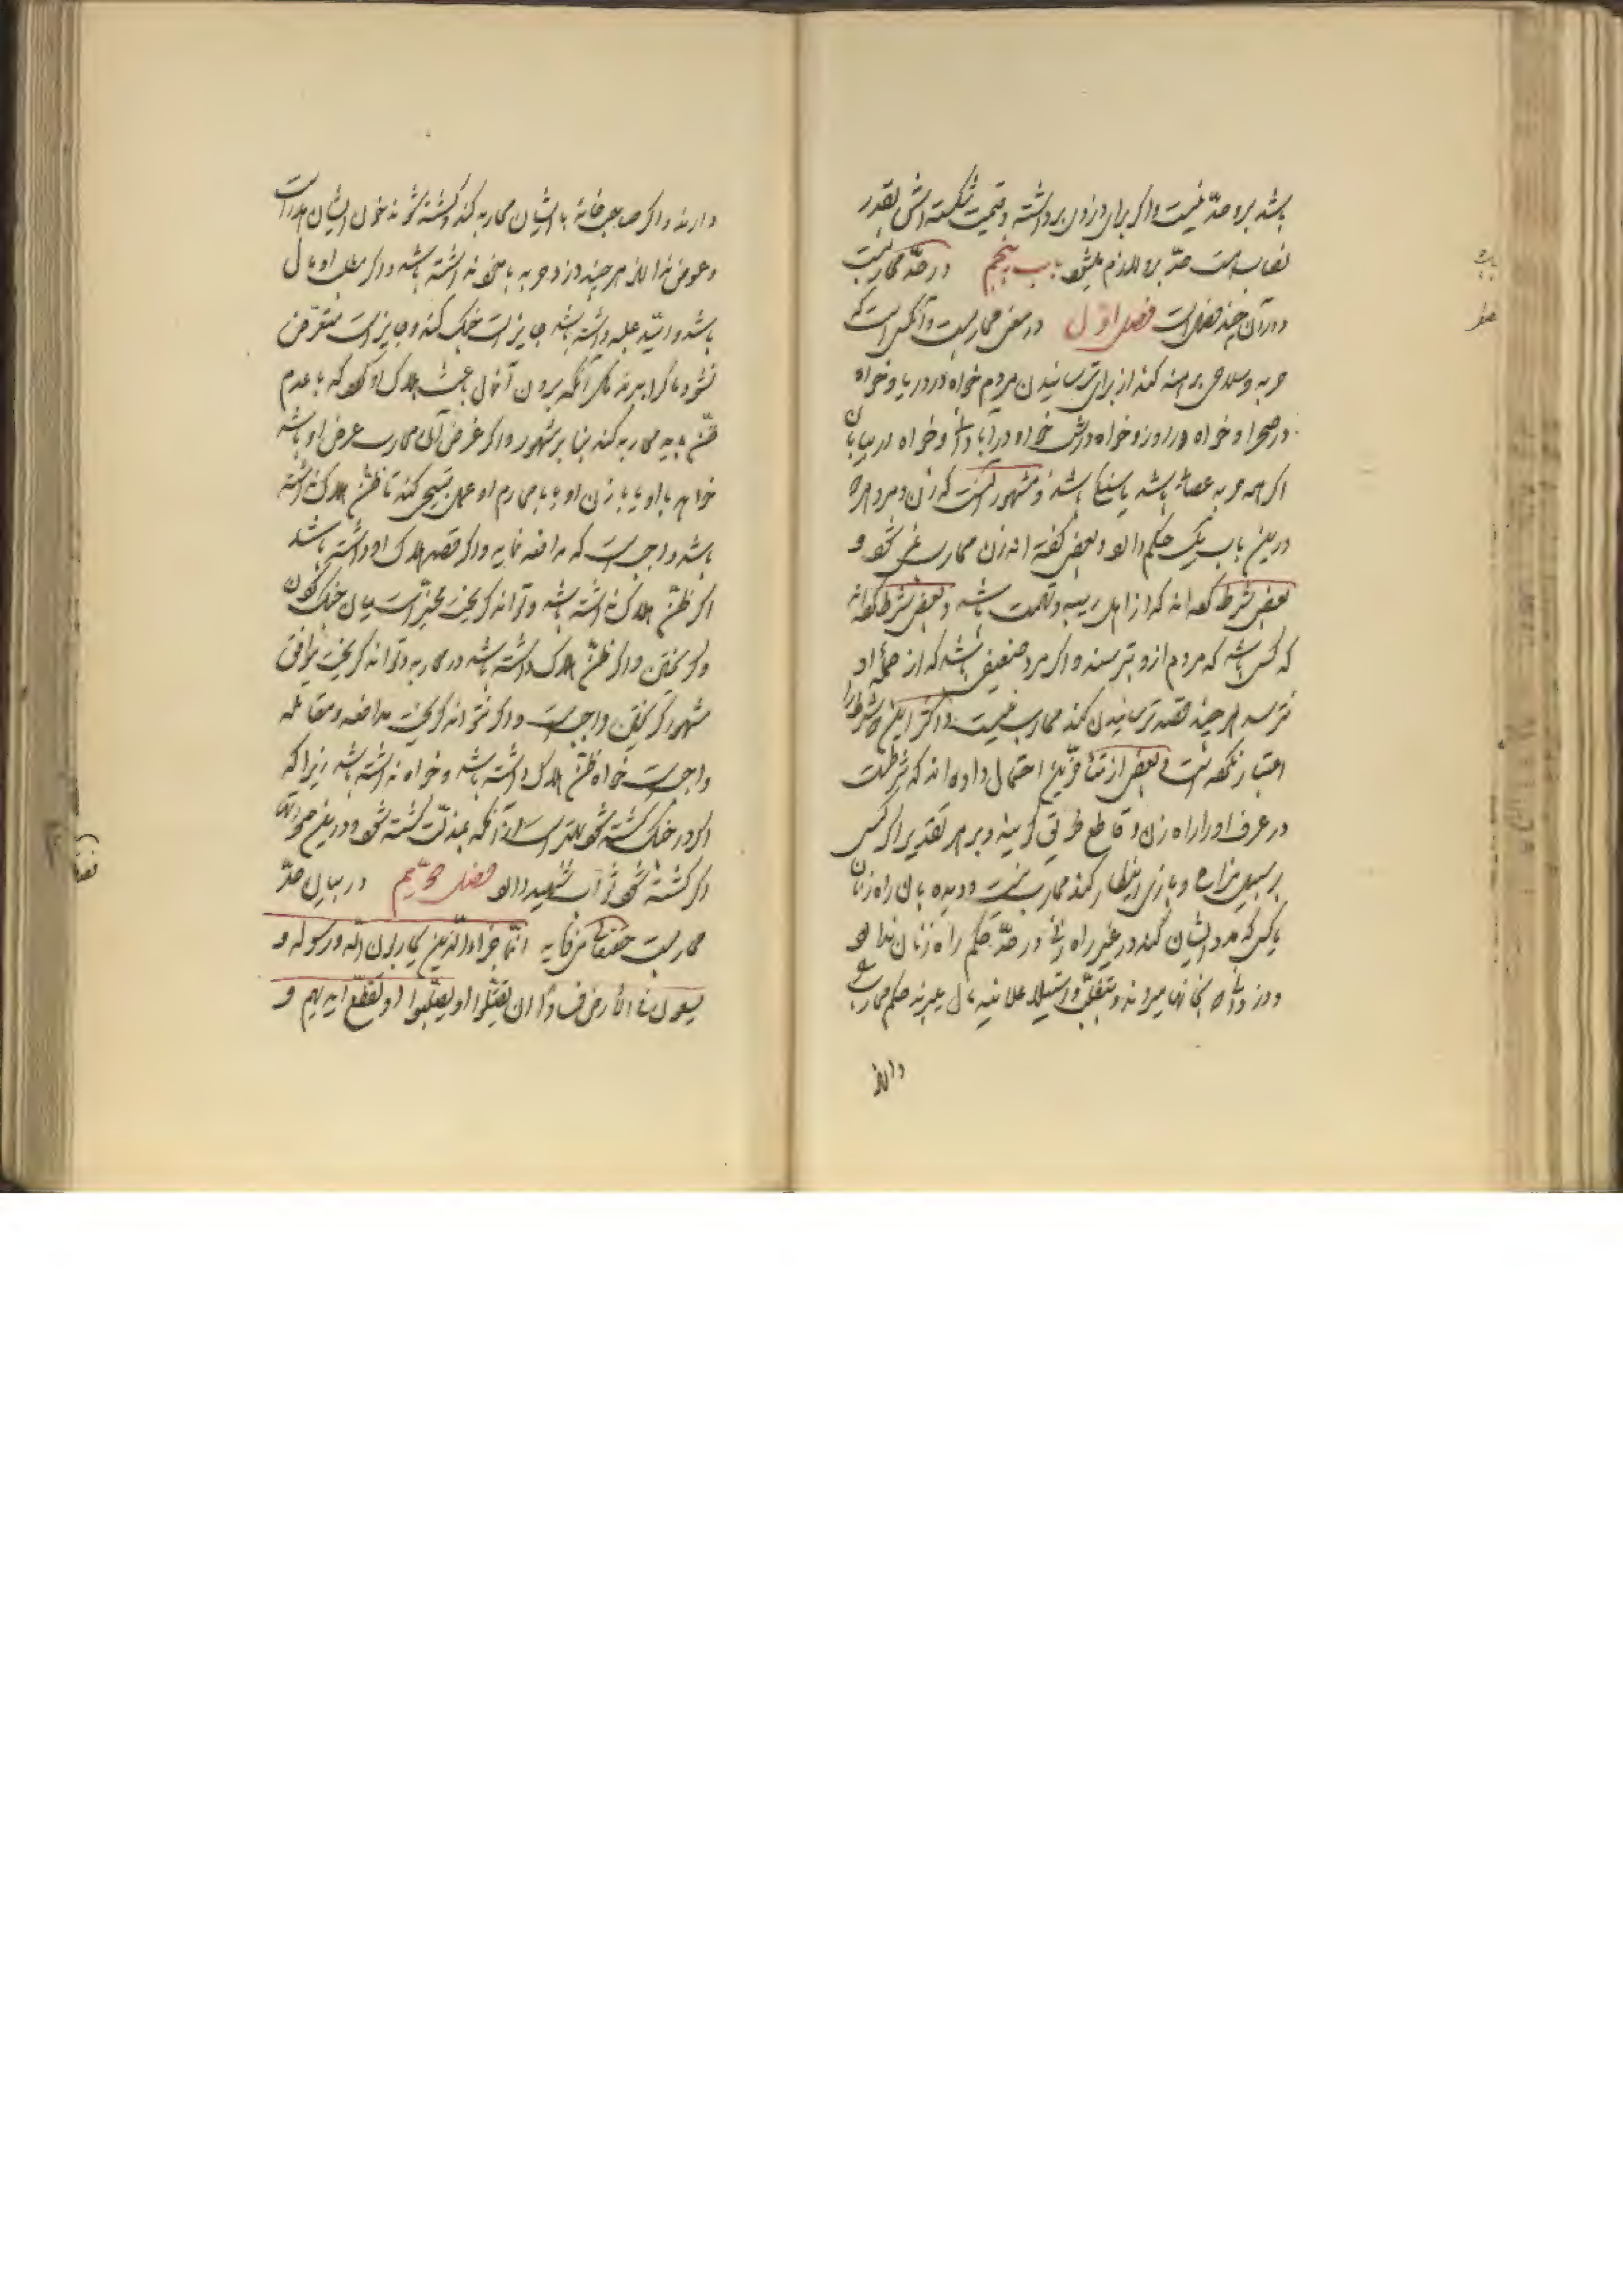 باشد برو حدّ نیست و اگر برای دزدی برداشته و قیمت شکسته‌اش بقدر
نصاب است حدّ برو لازم میشود باب پنجم در حدّ محاربست
و در آن چند فصل است فصل اوّل در معنی محاربست و آن کسی است که
حربه و سلاحی برهنه کند از برای ترسانیدن مردم خواه در دریا و خواه
در صحرا و خواه در روز و خواه در شب خواه در آبادانی و خواه در بیابان
اگرچه حربه عصا باشد یا سنگ باشد و مشهور آنست که زن و مرد
درین باب یک حکم دارد و بعضی گفته‌اند زن محارب نمی‌شود و
بعضی شرط کرده‌اند که از اهل ریبه و تهمت باشد و بعضی شرط کرده‌اند
که کسی باشد که مردم ازو بترسند و اگر مرد ضعیفی باشد که از حملهٔ او
نترسند هر چند قصد ترسانیدن کند محارب نیست و اکثر این شرط را
اعتبار نکرده‌است و بعضی از متأخّرین احتمال داده‌اند که شرطست
در عرف او را راه زن و قاطع طریق گویند و بر هر تقدیر اگر کسی
بر سبیل مزاح و بازی این کار کند محارب نیست و دیده بان راه زنان
یا کسی که مدد ایشان کند در غیر راه زنی در حدّ حکم راه زنان ندارد
و دزدانی که بخانها میروند و بتغلّب و استیلا علانیه مال میبرند حکم محارب
دارند
دارند و اگر صاحب خانه با ایشان محاربه کند و کشته شوند خون ایشان هدر است
و عوض ندارند هر چند دزد حربه با خود نداشته باشد و اگر مطلب او مال
باشد و امّید غلبه داشته باشد جایز است جنگ کند و جایز است متعرّض
نشود تا مال را ببرند مگر آنکه بردن آنمال باعث هلاک او گردد که با عدم
ظنّ باید محاربه کند بنا بر مشهور و اگر غرض آن محارب عرض او باشد
خواهد با او یا با زن او یا با محارم او عمل قبیحی کند تا ظنّ هلاک نداشته
باشد واجبست که مدافعه نماید و اگر قصد هلاک او داشته باشد
اگر ظنّ هلاک نداشته باشد و تواند گریخت مخیّر است میان جنگ کردن
و گریختن و اگر ظنّ هلاک داشته باشد در محاربه و تواند گریخت موافق
مشهور گریختن واجبست و اگر نتواند گریخت مدافعه و مقاتله
واجبست خواه ظنّ هلاک داشته باشد و خواه نداشته باشد زیرا که
اگر در جنگ کشته شود بهتر است از آنکه بمذلّت کشته شود و درین صورتها
اگر کشته شود ثواب شهید دارد فصل دویّم در بیان حدّ
محاربست حقتعالی میفرماید انّما جزاء الّذین یحاربون اللّه و رسوله و
یسعون فی الارض فسادا ان یقتّلوا او یصلّبوا او تقطّع ایدیهم و